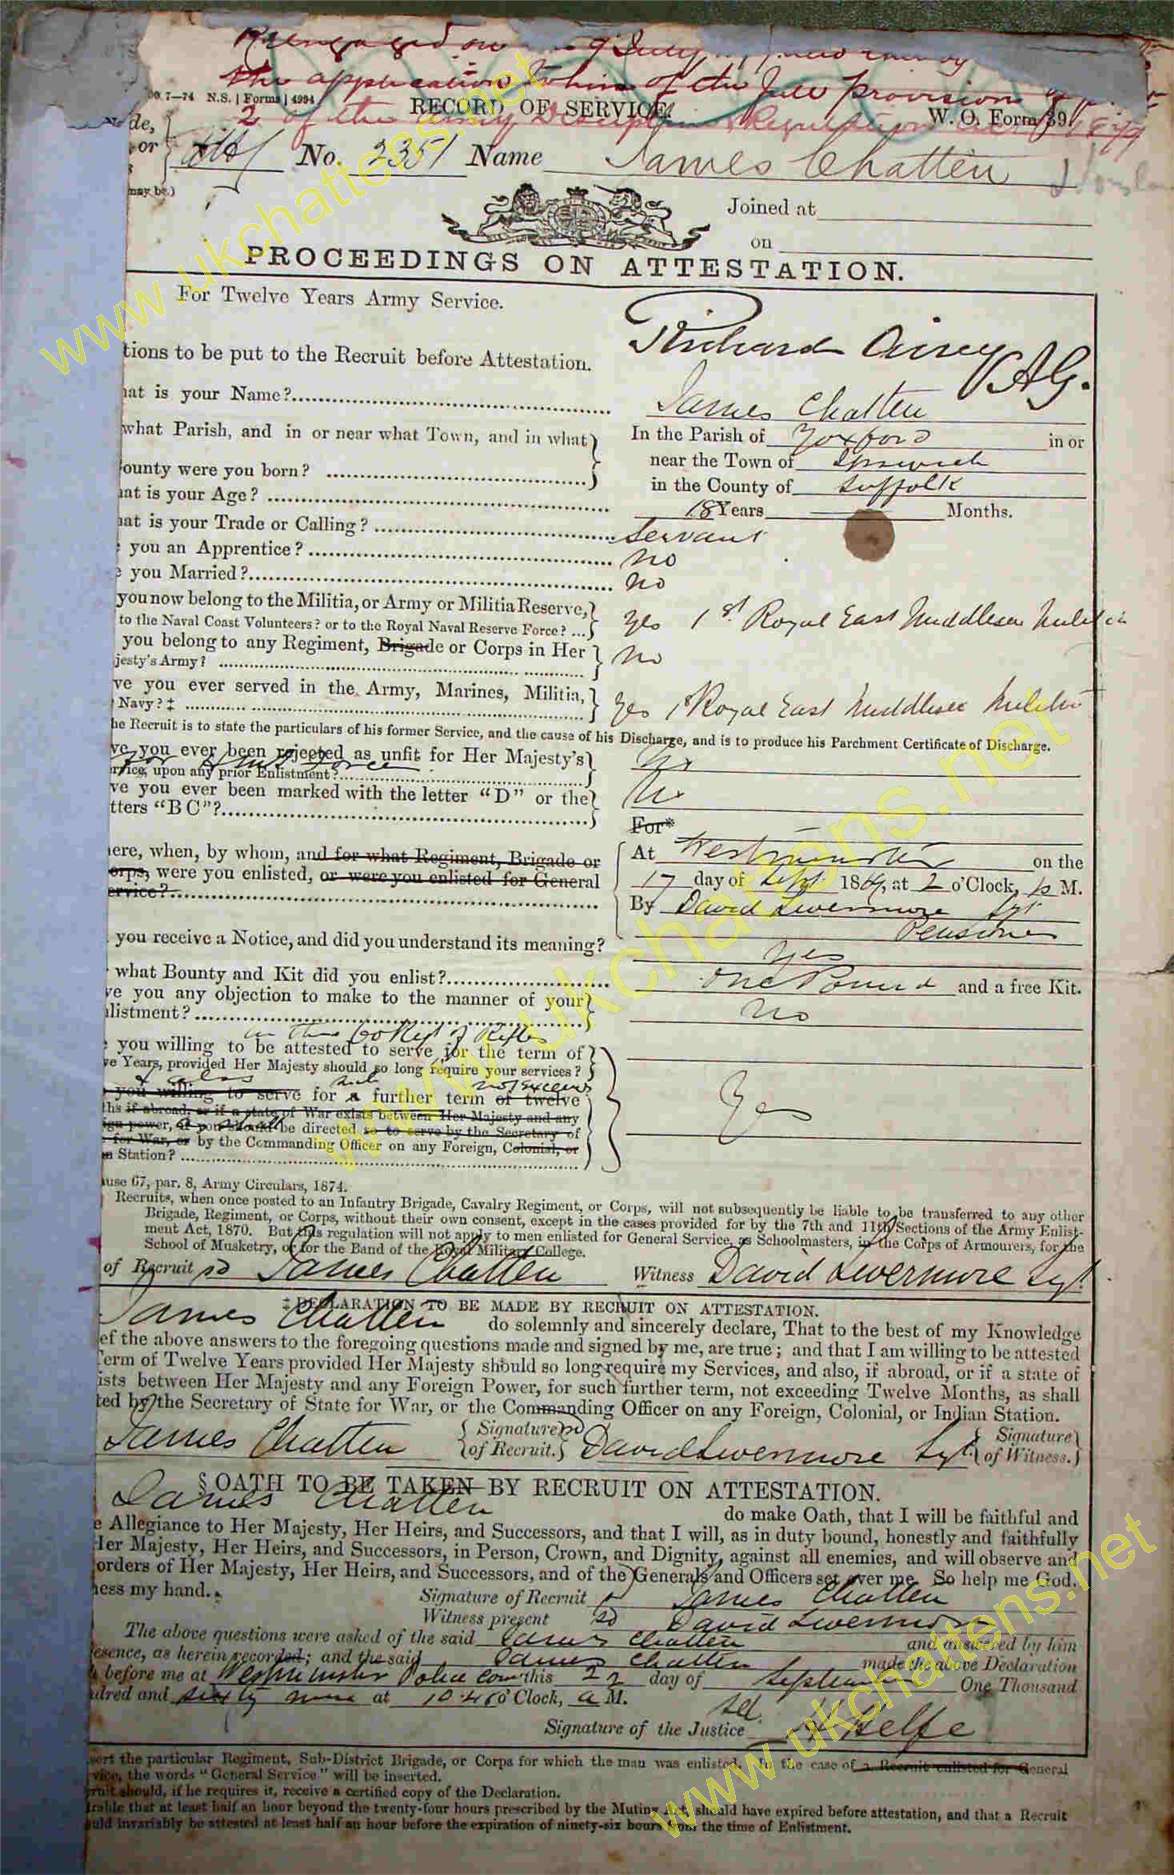 Reengaged on 9 July
the application to him of the full provision
00 7—74 N.S. | Forms | 4994 RECORD OF SERVICE. W. O. Form 39
2 of the Army Discipline & Regulation 1879
ode,
or No. 2351 Name James Chatten
may be.)
Joined at
on
PROCEEDINGS ON ATTESTATION.
For Twelve Years Army Service.
Richard Airey AG.
tions to be put to the Recruit before Attestation.
hat is your Name? James Chatten
what Parish, and in or near what Town, and in what In the Parish of Yoxford in or
near the Town of Ipswich
ounty were you born? in the County of Suffolk
hat is your Age? 18 Years Months.
hat is your Trade or Calling? Servant
you an Apprentice? no
you Married? no
you now belong to the Militia, or Army or Militia Reserve, yes 1st Royal East Middlesex Militia
to the Naval Coast Volunteers? or to the Royal Naval Reserve Force?
you belong to any Regiment, Brigade or Corps in Her no
jesty's Army?
ve you ever served in the Army, Marines, Militia, yes 1 Royal East Middlesex Militia
Navy?‡
he Recruit is to state the particulars of his former Service, and the cause of his Discharge, and is to produce his Parchment Certificate of Discharge.
ve you ever been rejected as unfit for Her Majesty's No
rvice, upon any prior Enlistment?
ve you ever been marked with the letter "D" or the No
tters "BC"?
For*
here, when, by whom, and for what Regiment, Brigade or At Westminster on the
orps, were you enlisted, or were you enlisted for General 17 day of Sept 1869, at 2 o'Clock, p M.
ervice? By David Livermore Sgt
Pensioner
you receive a Notice, and did you understand its meaning? Yes
what Bounty and Kit did you enlist? One Pound and a free Kit.
ve you any objection to make to the manner of your no
nlistment?
in the 60 Regt of Rifles
you willing to be attested to serve for the term of
ve Years, provided Her Majesty should so long require your services?
such not exceeds
you willing to serve for a further term of twelve Yes
ths if abroad, or if a state of War exists between Her Majesty and any
ign power, as you should be directed so to serve by the Secretary of
for War, or by the Commanding Officer on any Foreign, Colonial, or
n Station?
ause 67, par. 8, Army Circulars, 1874.
Recruits, when once posted to an Infantry Brigade, Cavalry Regiment, or Corps, will not subsequently be liable to be transferred to any other
Brigade, Regiment, or Corps, without their own consent, except in the cases provided for by the 7th and 11th Sections of the Army Enlist-
ment Act, 1870. But this regulation will not apply to men enlisted for General Service, as Schoolmasters, in the Corps of Armourers, for the
School of Musketry, or for the Band of the Royal Military College.
of Recruit sd James Chatten Witness David Livermore Sgt.
‡ DECLARATION TO BE MADE BY RECRUIT ON ATTESTATION.
James Chatten do solemnly and sincerely declare, That to the best of my Knowledge
ef the above answers to the foregoing questions made and signed by me, are true; and that I am willing to be attested
Term of Twelve Years provided Her Majesty should so long require my Services, and also, if abroad, or if a state of
ists between Her Majesty and any Foreign Power, for such further term, not exceeding Twelve Months, as shall
ted by the Secretary of State for War, or the Commanding Officer on any Foreign, Colonial, or Indian Station.
James Chatten Signature of Recruit. sd David Livermore Sgt. Signature of Witness.
§ OATH TO BE TAKEN BY RECRUIT ON ATTESTATION.
James Chatten do make Oath, that I will be faithful and
e Allegiance to Her Majesty, Her Heirs, and Successors, and that I will, as in duty bound, honestly and faithfully
Her Majesty, Her Heirs, and Successors, in Person, Crown, and Dignity, against all enemies, and will observe and
orders of Her Majesty, Her Heirs, and Successors, and of the Generals and Officers set over me. So help me God.
ness my hand.
Signature of Recruit James Chatten
Witness present sd David Livermore
The above questions were asked of the said James Chatten and answered by him
esence, as herein recorded; and the said James Chatten made the above Declaration
before me at Westminster Police Court this 22 day of September One Thousand
dred and sixty nine at 10.45 o'Clock, a M.
Signature of the Justice sd Selfe
sert the particular Regiment, Sub-District Brigade, or Corps for which the man was enlisted. In the case of a Recruit enlisted for General
rvice, the words "General Service" will be inserted.
ruit should, if he requires it, receive a certified copy of the Declaration.
rable that at least half an hour beyond the twenty-four hours prescribed by the Mutiny Act, should have expired before attestation, and that a Recruit
ould invariably be attested at least half an hour before the expiration of ninety-six hours from the time of Enlistment.
www.ukchattens.net
www.ukchattens.net
www.ukchattens.net